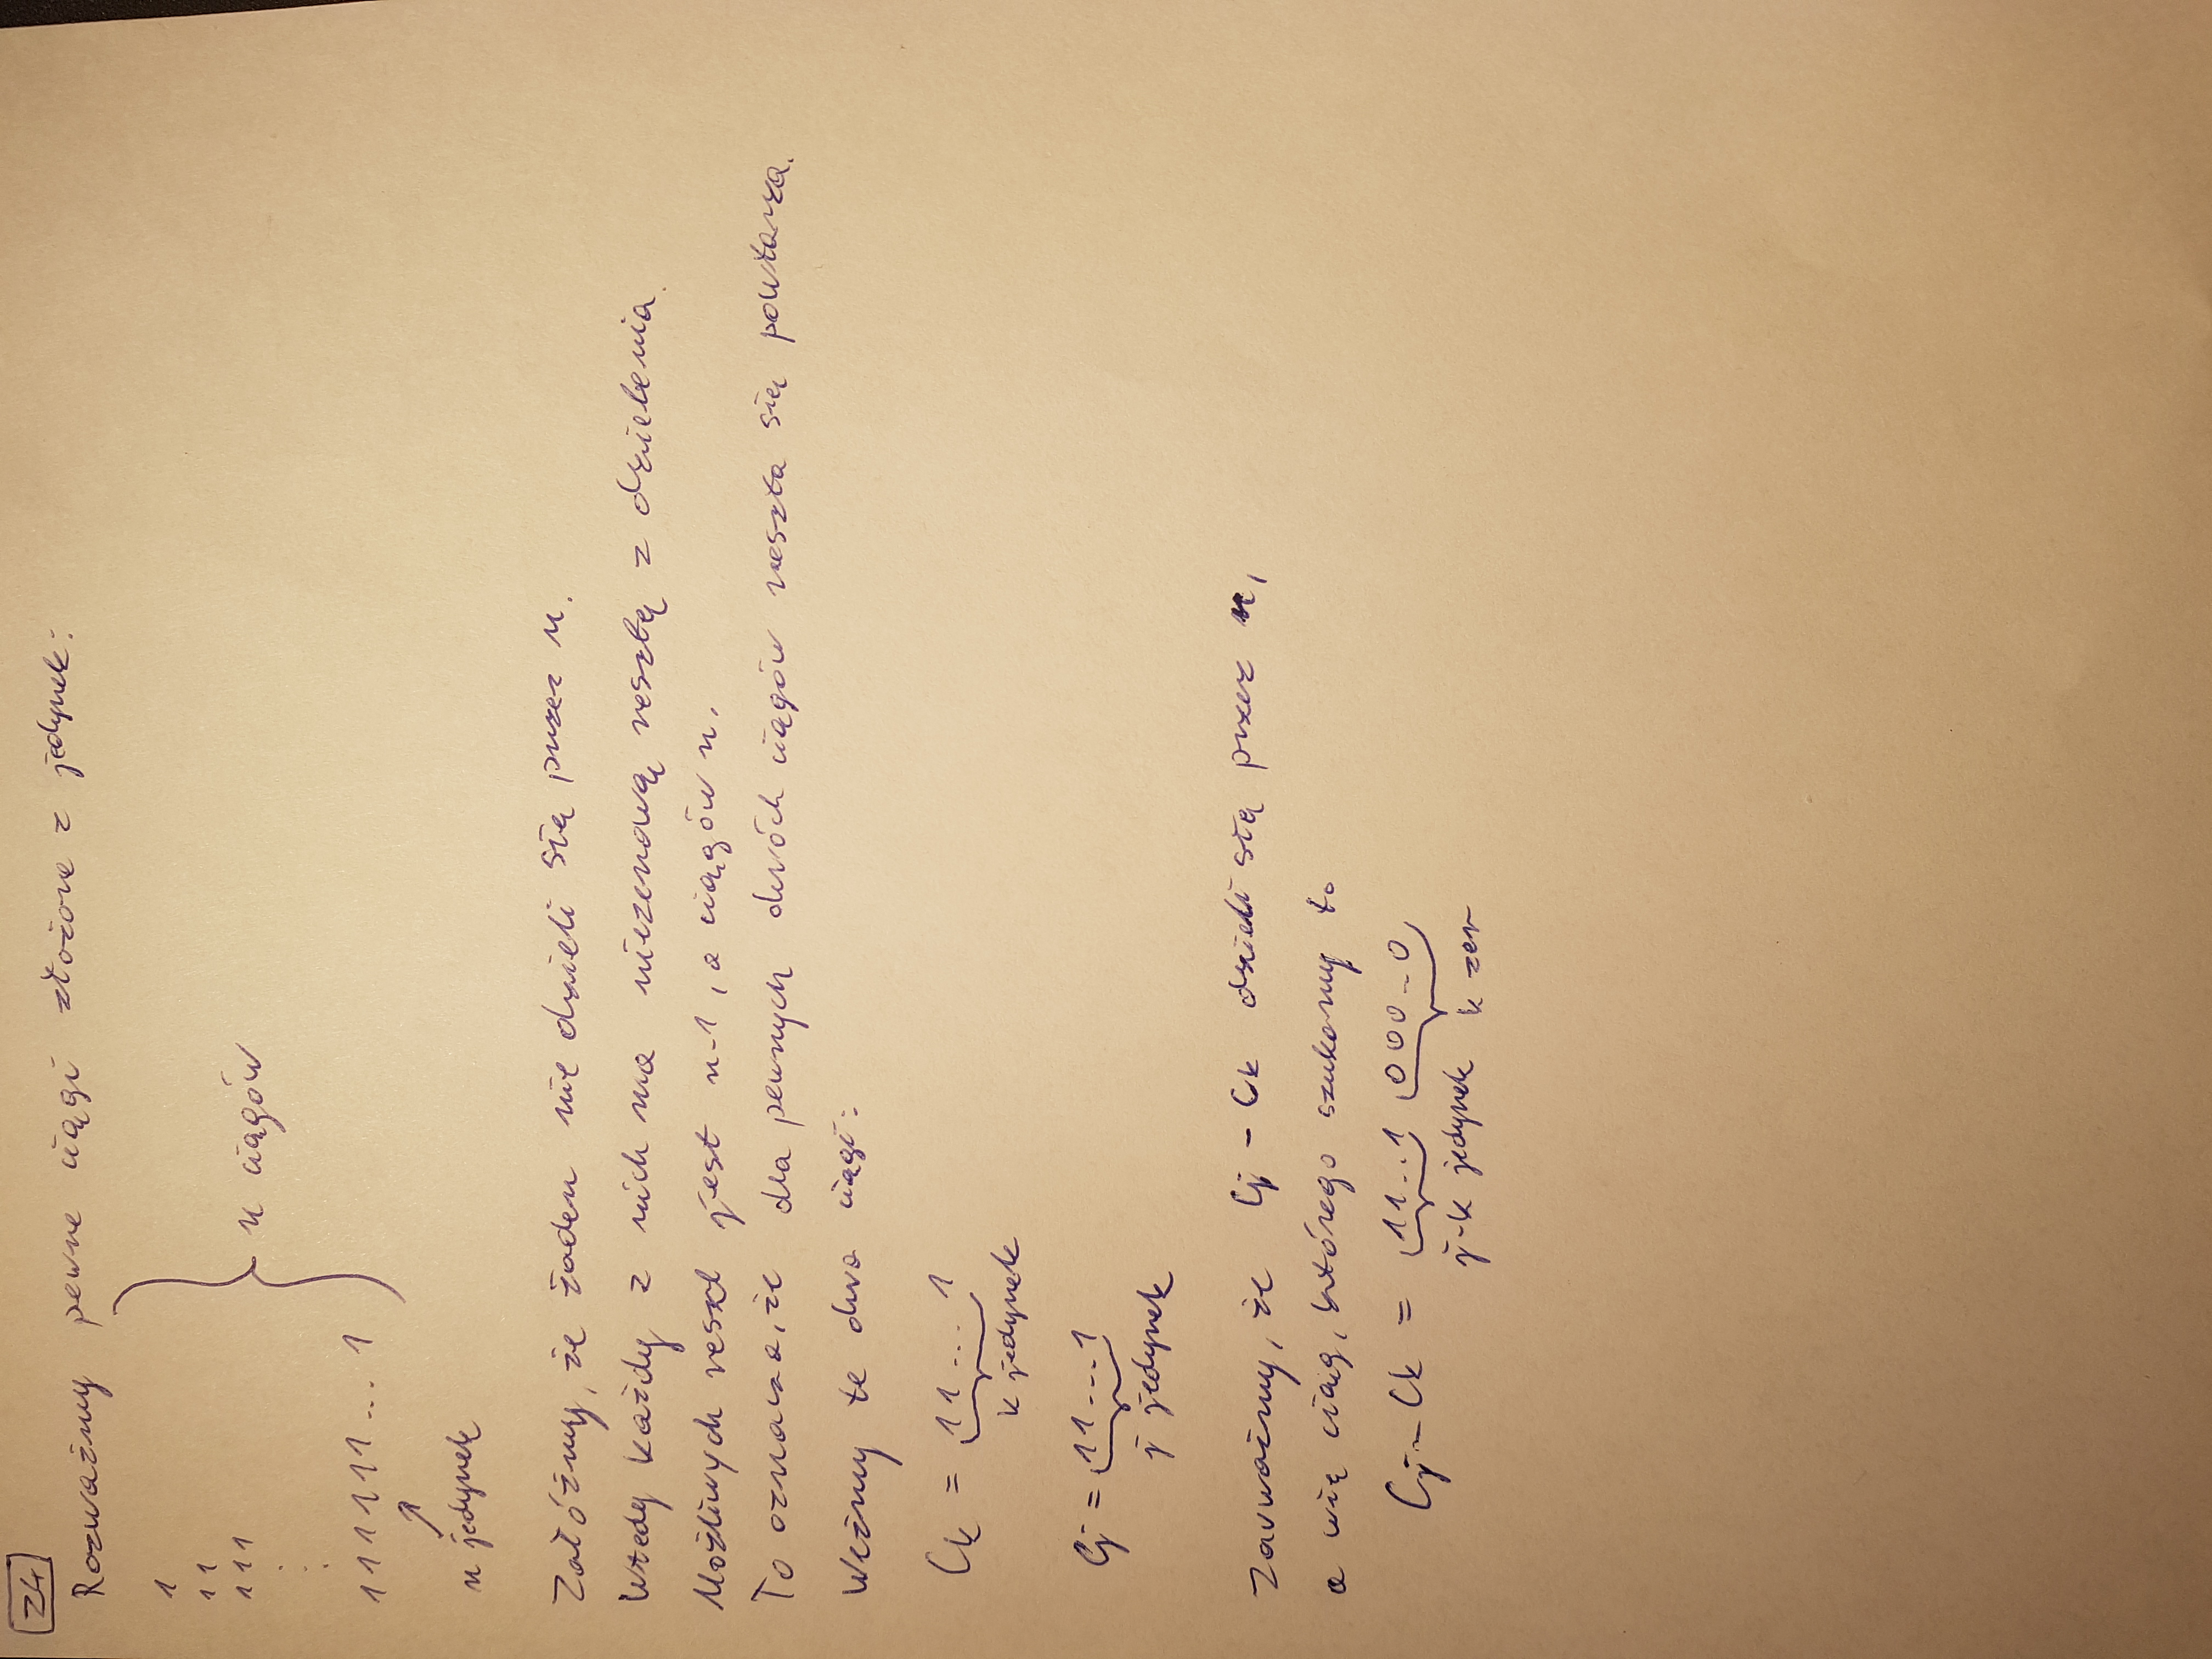 Z4
Rozważmy pewne ciągi złożone z jedynek:
1
11
111
⋮
n ciągów
111111... 1
n jedynek
Załóżmy, że żaden nie dzieli się przez n.
Wtedy każdy z nich ma niezerową resztę z dzielenia.
Możliwych reszt jest n-1, a ciągów n.
To oznacza, że dla pewnych dwóch ciągów reszta się powtarza.
Weźmy te dwa ciągi:
Ck = 11... 1
k jedynek
Cj = 11...1
j jedynek
Zauważmy, że Cj - Ck dzieli się przez n,
a wię ciąg, którego szukamy to
Cj - Ck = 11..1 000..0
j-k jedynek k zer